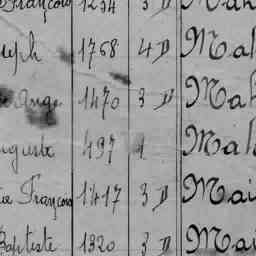 François 1254 3 D Mah
seph 1768 4 D Mal
Ange 1470 3 D Mah
uguste 497 1 Mal
François 1417 3 D Mai
Baptiste 1320 3 D Mai